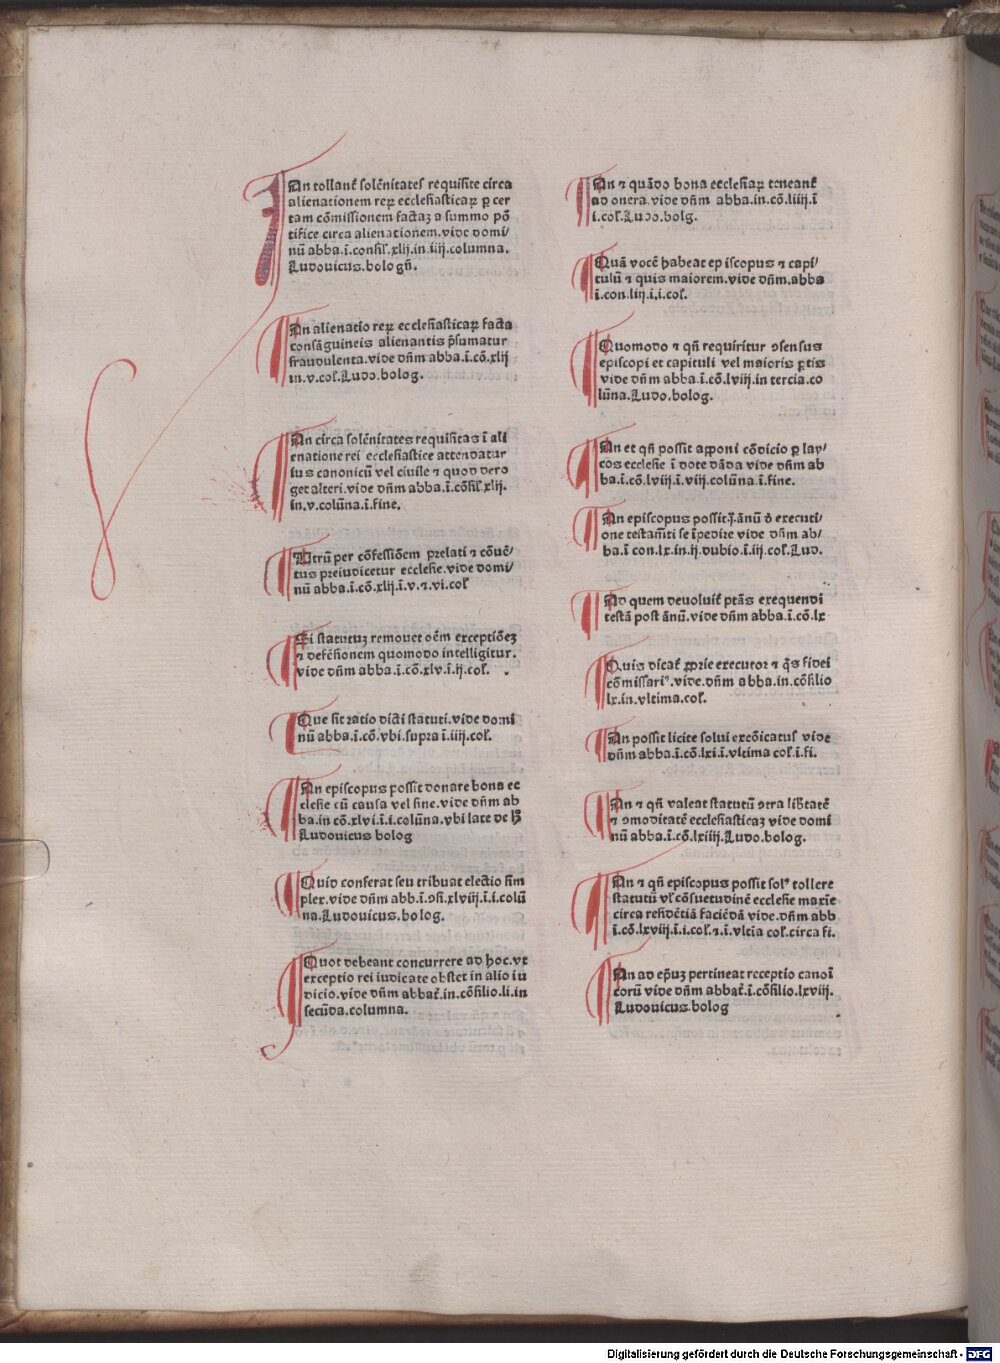 An tollant᷑ solēnitates requisite circa
alienationem reꝝ ecclesiasticaꝝ ꝑ cer
tam cōmissionem factaꝫ a summo pō
tifice circa alienationem.vide domi/
nū abba.ī.consil̕.xlij.in.iiij.columna.
Ludouicus.bologn̄.
An alienatio reꝝ ecclesiasticaꝝ facta
consāguineis alienantis p̄sumatur
fraudulenta.vide dn̄m abba.ī.cō.xlij
in.v.col̕.Ludo.bolog.
An circa solēnitates requisitas ī ali
enatione rei ecclesiastice attendatur
ius canonicū vel ciuile ⁊ quod dero
get alteri.vide dn̄m abba.ī.cōsil̕.xlij.
in.v.colūna.ī.fine.
Utrū per cōfessiōem prelati ⁊ cōuē/
tus preiudicetur ecclesie.vide domi/
nū abba.ī.cō.xlij.ī.v.⁊.vi.col̕
Si statutuꝫ remouet oēm exceptiōeꝫ
⁊ defēsionem quomodo intelligitur.
vide dn̄m abba.ī.cō.xlv.ī.ij.col̕.
Que sit ratio dicti statuti.vide domi
nū abba.ī.cō.vbi.supra ī.iiij.col̕.
An episcopus possit donare bona ec
clesie cū causa vel sine.vide dn̄m ab
ba.in cō.xlvi.ī.i.colūna.vbi late de h̄
Ludouicus bolog
Quid conferat seu tribuat electio sim
plex.vide dn̄m abb.ī.ɔsi.xlviij.ī.i.colū
na.Ludouicus.bolog.
Quot debeant concurrere ad hoc.vt
exceptio rei iudicate obstet in alio iu
dicio.vide dn̄m abbat᷑.in.cōsilio.li.in
secūda.columna.
An ⁊ quādo bona ecclesiaꝝ teneant᷑
ad onera.vide dn̄m abba.in.cō.liiij.ī
i.col̕.Ludo.bolg.
Quā vocē habeat episcopus ⁊ capi/
tulū ⁊ quis maiorem.vide dn̄m.abba
ī.con.liij.i.i.col̕.
Quomodo ⁊ qn̄ requiritur ɔsensus
episcopi et capituli vel maioris ꝑtis
vide dn̄m abba.ī.cō.lviij.in tercia.co
lūna.Ludo.bolog.
An et qn̄ possit apponi cōdicio ꝑ lay/
cos ecclesie ī dote dāda vide dn̄m ab
ba.ī.cō.lviij.ī.viij.colūna.ī.fine.
An episcopus possit ī.ānū d̄ executi/
one testam̄ti se īpedire vide dn̄m ab/
ba.ī con.lx.in.ij.dubio.ī.iij.col̕.Lud.
Ad quem deuoluit᷑ ptās exequendi
testā post ānū.vide dn̄m abba.ī.cō.lx
Quis dicat᷑ ꝓprie executor ⁊ q̄s fidei
cōmissariꝰ.vide.dn̄m abba.in.cōsilio
lx.in.vltima.col̕.
An possit licite solui excōicatus vide
dn̄m abba.ī.cō.lxi.ī.vltima col̕.ī.fi.
An ⁊ qn̄ valeat statutū ɔtra lib̄tatē
⁊ ɔmoditatē ecclesiasticaꝫ vide domi
nū abba.ī.cō.lxiiij.Ludo.bolog.
An ⁊ qn̄ episcopus possit solꝰ tollere
statutū vl̕ cōsuetudinē ecclesie maxīe
circa residētiā faciēdā vide.dn̄m abb
ī.cō.lxviij.ī.i.col̕.⁊.ī.vltīa col̕.circa fi.
An ad ep̄uꝫ pertineat receptio canoī
corū vide dn̄m abbat᷑.ī.cōsilio.lxviij.
Ludouicus.bolog
Digitalisierung gefördert durch die Deutsche Forschungsgemeinschaft - DFG